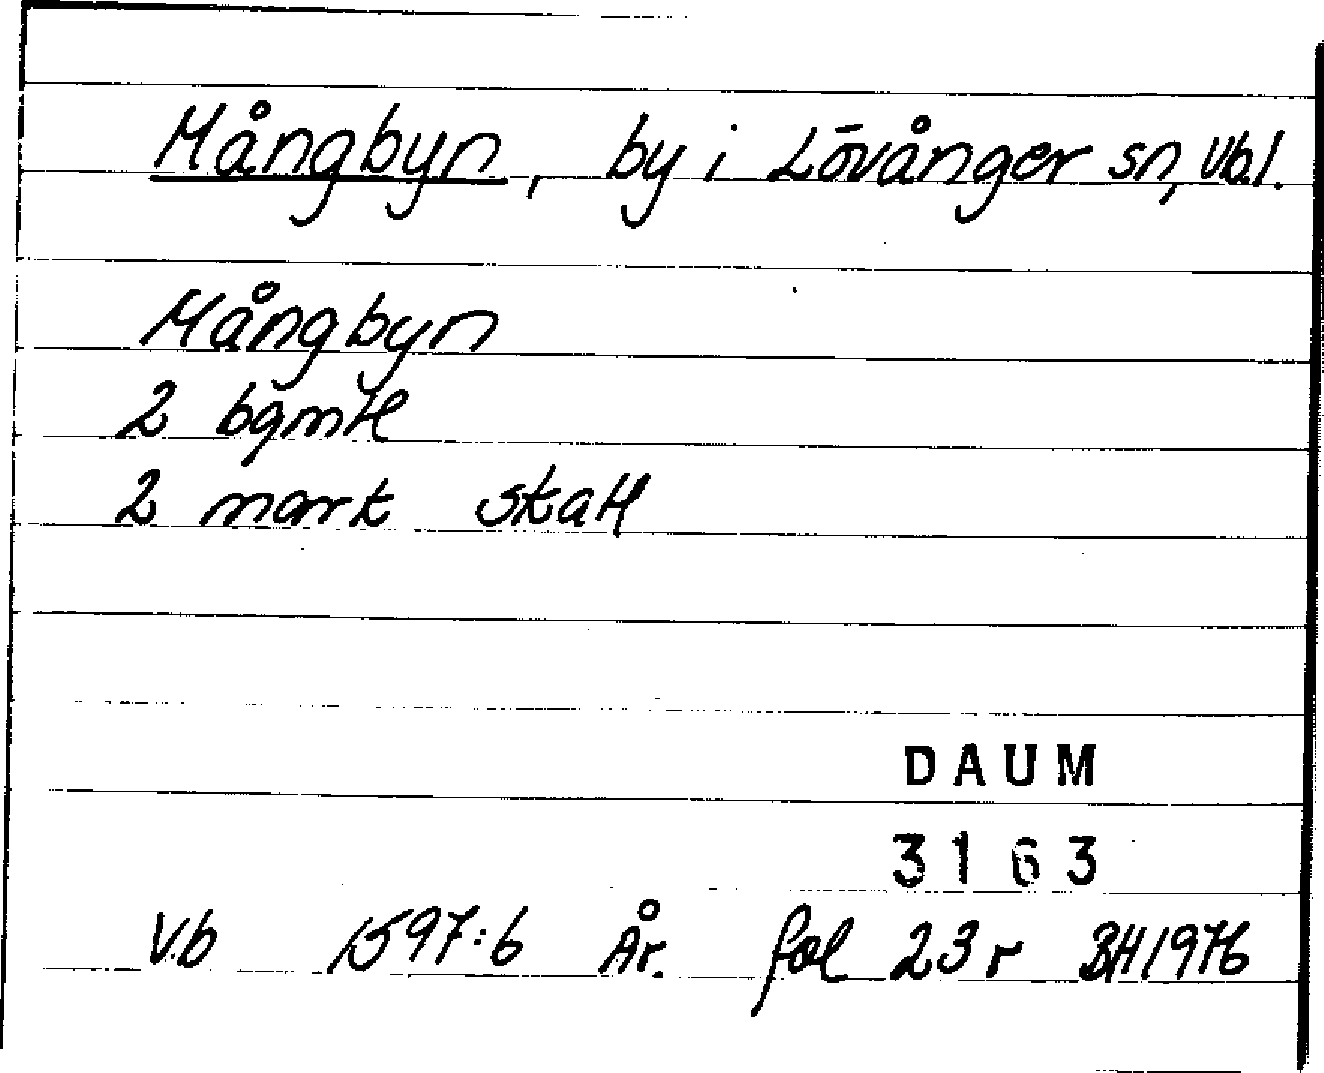 Mångbyn, by i Lövånger sn, Vb.l.
Mångbyn
2 bgmtl
2 mark skatt
DAUM
3163
Vb 1597:6 År. fol 23 r BH1976